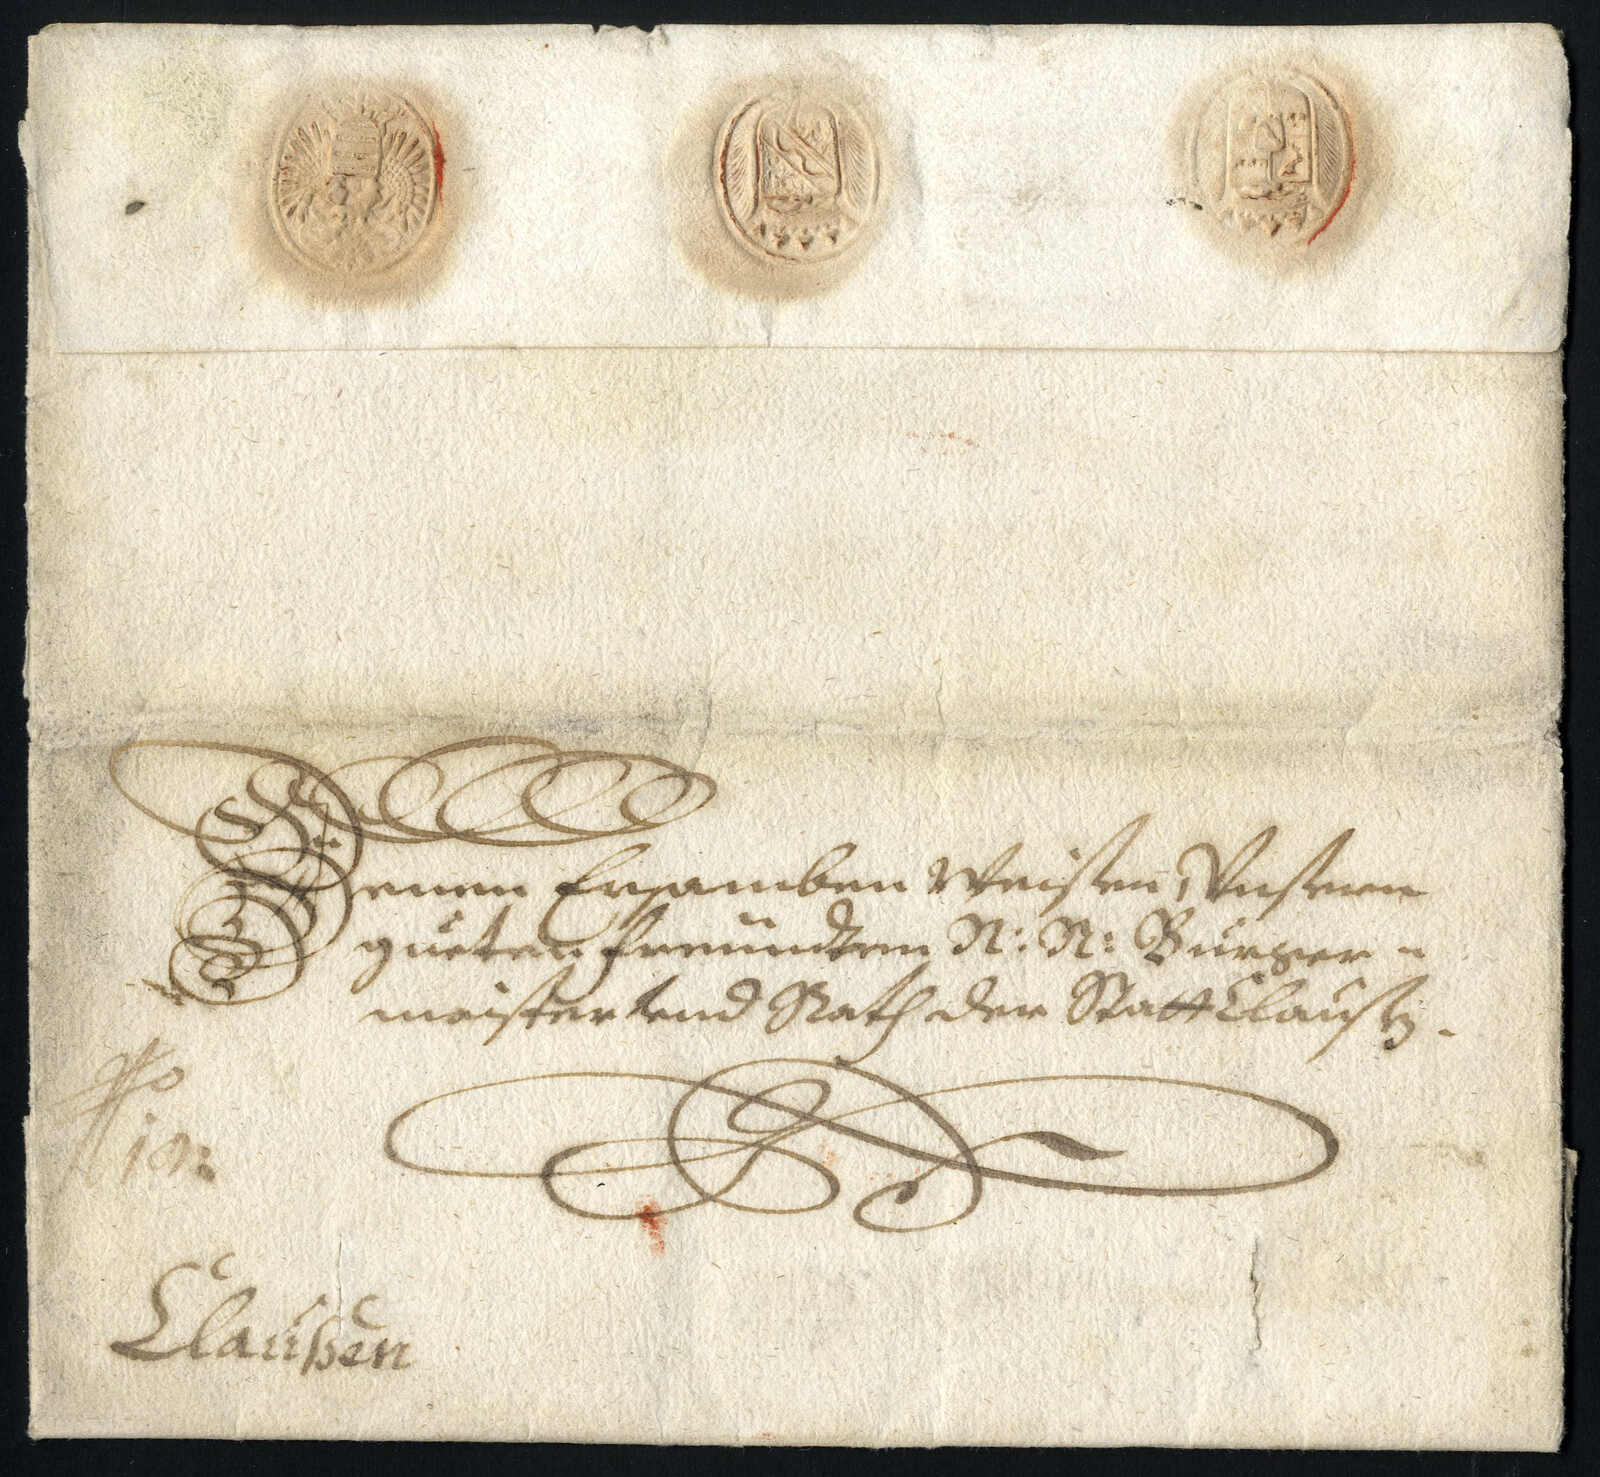 Denen Ersamben Weisen, Unsern
gueten freundten N: N: Burger =
meister und Rath der Statt Clausen.
10:
Claußen